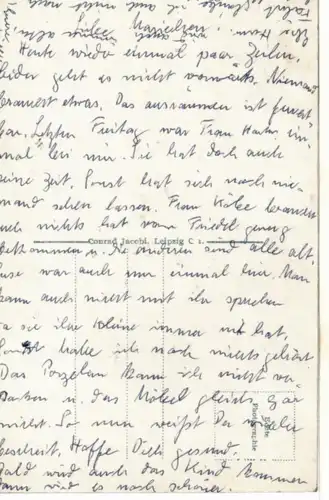 Liebe Mariechen!
Heute wieder einmal paar Zeilen,
leider geht es nicht vorwärts. Niemand
braucht etwas. Das ausräumen ist
bar. Letzten Freitag war Frau Hahn ein
mal bei mir. Sie hat doch auch
keine Zeit. Sonst hat sich noch nie
mand sehen lassen. Frau braucht
auch nichts hat von Friedel genug
bekommen u. die anderen sind alle alt.
war auch nur einmal hier. Man
kann auch nicht mit ihr sprechen
da sie ihre Kleine immer mit hat,
Sonst habe ich noch nichts gehört
Das Porzellan kann ich nicht ver
packen u. das Möbel gleich gar
nicht. So nun weißt Du wieder
bescheit. Hoffe Dich gesund.
Bald wird auch das Kind kommen
dann wird es noch schöner.
Conrad Jacobi, Leipzig C 1.
Echte
Photographie